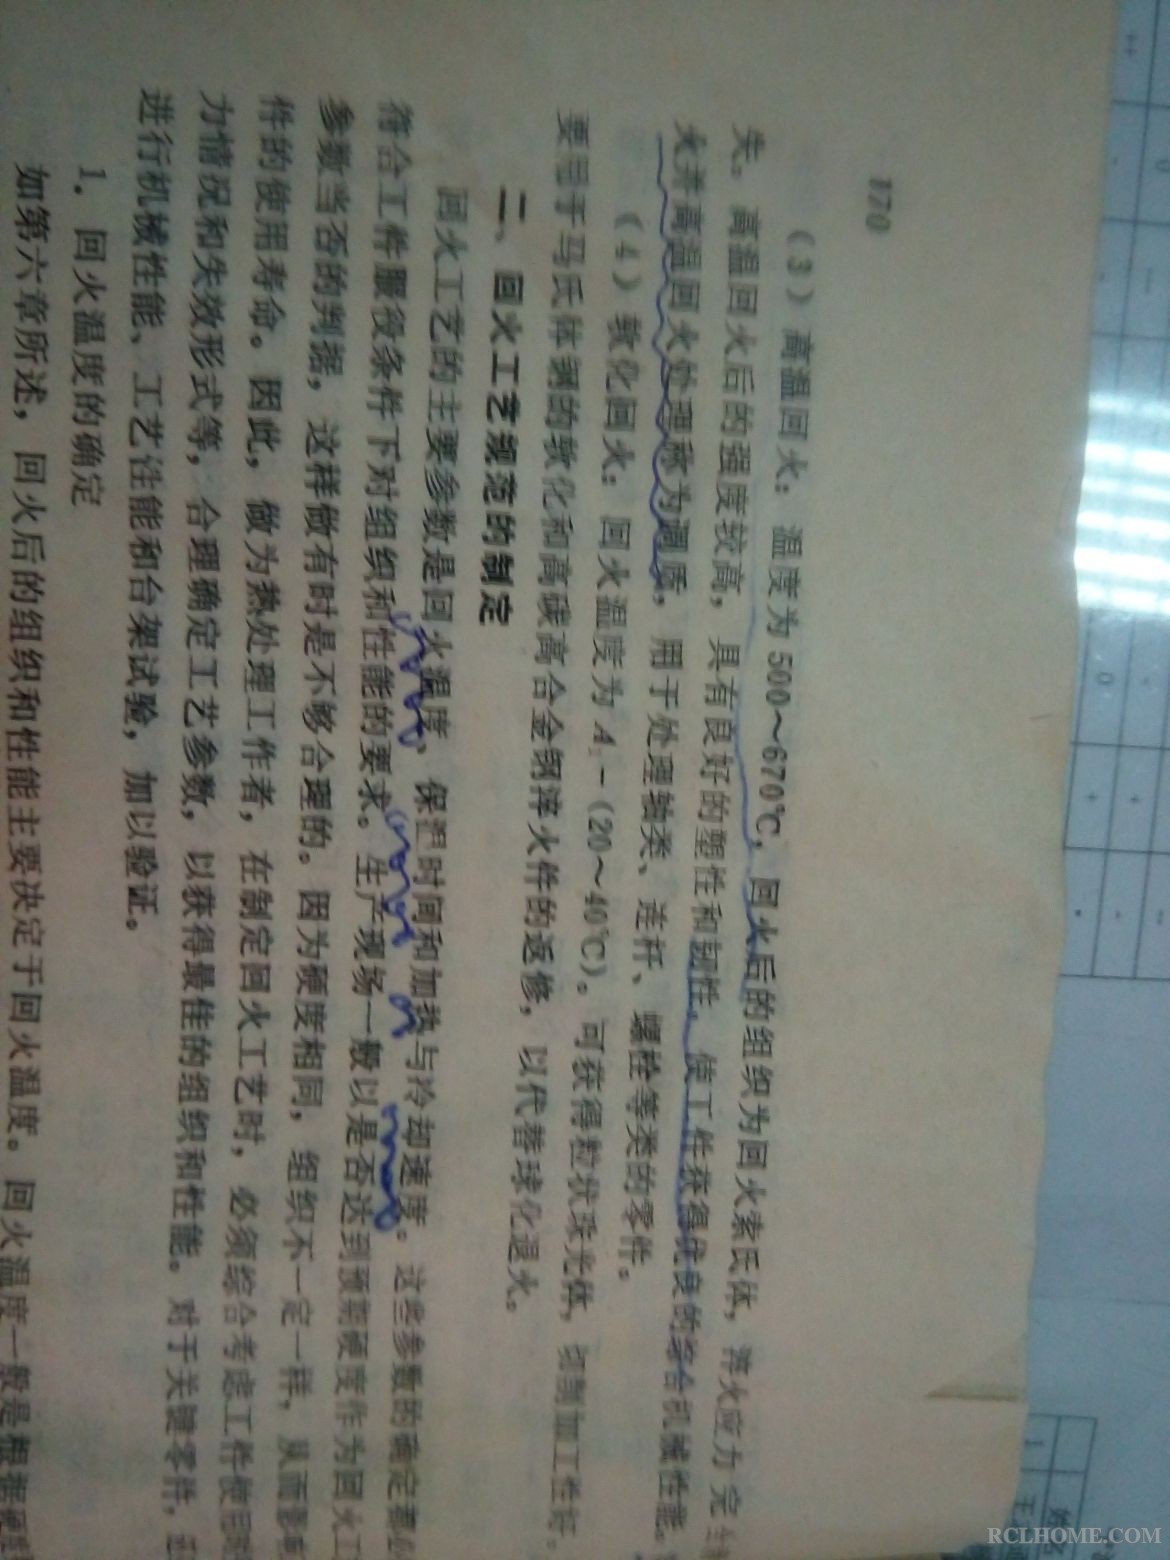 170
（3）高温回火：温度为500～670℃，回火后的组织为回火索氏体，淬火应力完
失。高温回火后的强度较高，具有良好的塑性和韧性，使工件获得优良的综合机械性能。
火并高温回火处理称为调质，用于处理轴类、连杆、螺栓等类的零件。
（4）软化回火：回火温度为A₁－（20～40℃）。可获得粒状珠光体，切削加工性好。
要用于马氏体钢的软化和高碳高合金钢淬火件的返修，以代替球化退火。
二、回火工艺规范的制定
回火工艺的主要参数是回火温度、保温时间和加热与冷却速度。这些参数的确定都
符合工件服役条件下对组织和性能的要求。生产现场一般以是否达到预期硬度作为回火工
参数当否的判据，这样做有时是不够合理的。因为硬度相同，组织不一定一样，从而影响
件的使用寿命。因此，做为热处理工作者，在制定回火工艺时，必须综合考虑工件使用
力情况和失效形式等，合理确定工艺参数，以获得最佳的组织和性能。对于关键零件，
进行机械性能、工艺性能和台架试验，加以验证。
1．回火温度的确定
如第六章所述，回火后的组织和性能主要决定于回火温度。回火温度一般是根据硬
姓名
1
RCLHOME.COM